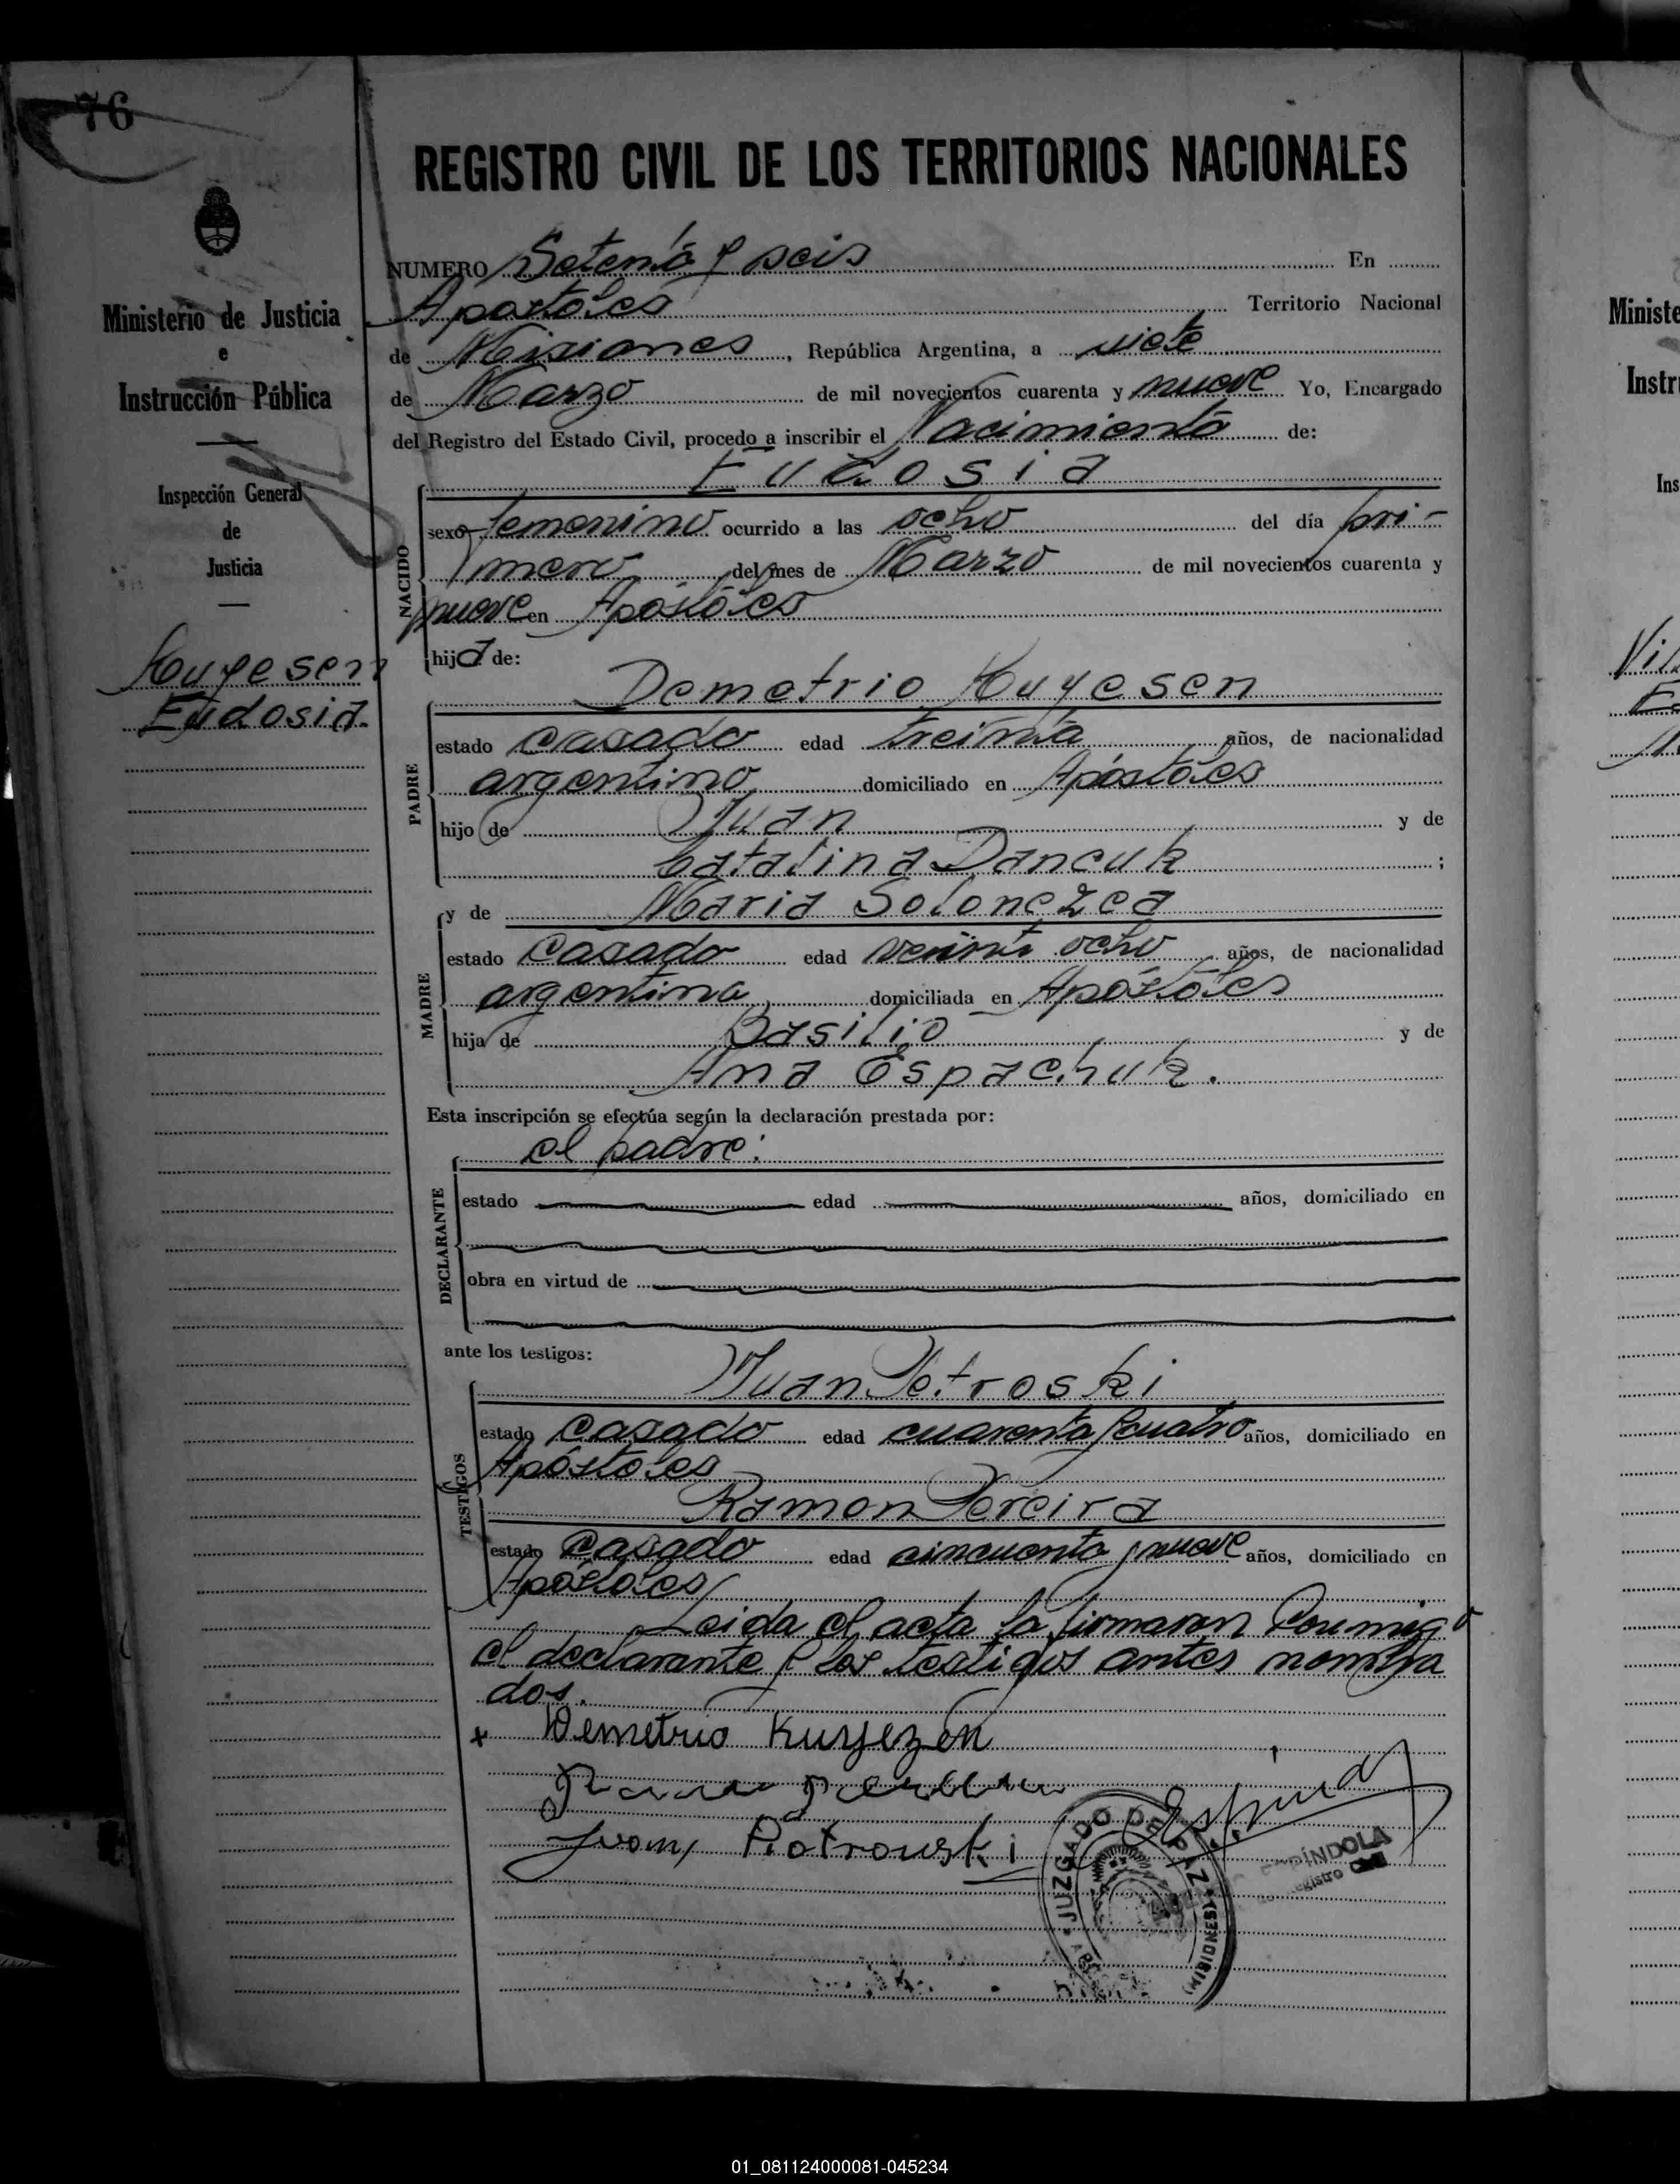 76
REGISTRO CIVIL DE LOS TERRITORIOS NACIONALES
Ministerio de Justicia
e
Instrucción Pública
Inspección General
de
Justicia
Kuyesen
Eudosia
NUMERO Setenta y seis En
Apostoles Territorio Nacional
de Misiones, República Argentina, a siete
de Marzo de mil novecientos cuarenta y nueve Yo, Encargado
del Registro del Estado Civil, procedo a inscribir el Nacimiento de:
Eudosia
NACIDO
sexo femenino ocurrido a las ocho del día pri-
mero del mes de Marzo de mil novecientos cuarenta y
nueve en Apóstoles
hija de:
Demetrio Kuyesen
PADRE
estado casado edad treinta años, de nacionalidad
argentino domiciliado en Apóstoles
hijo de Juan y de
Catalina Dancuk ;
y de Maria Solonezca
MADRE
estado casado edad veinti ocho años, de nacionalidad
argentina domiciliada en Apóstoles
hija de Basilio y de
Ana Espachuk.
Esta inscripción se efectúa según la declaración prestada por:
el padre:
DECLARANTE
estado edad años, domiciliado en
obra en virtud de
ante los testigos:
Juan Petroski
TESTIGOS
estado casado edad cuarenta y cuatro años, domiciliado en
Apóstoles
Ramon Pereira
estado casado edad cincuenta y nueve años, domiciliado en
Apóstoles
Leida el acta la firmaron conmigo
el declarante y los testigos antes nombra
dos.
x Demetrio Kuyezen
Juan Piotrouski
JUZGADO DE PAZ
(MISIONES)
ESPÍNDOLA
Registro
Ministe
Instr
Ins
01_081124000081-045234